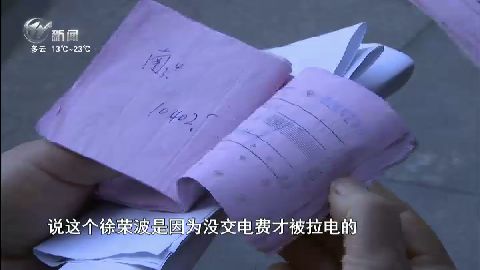 新闻
多云 13℃~23℃
南
10402
说这个徐荣波是因为没交电费才被拉电的